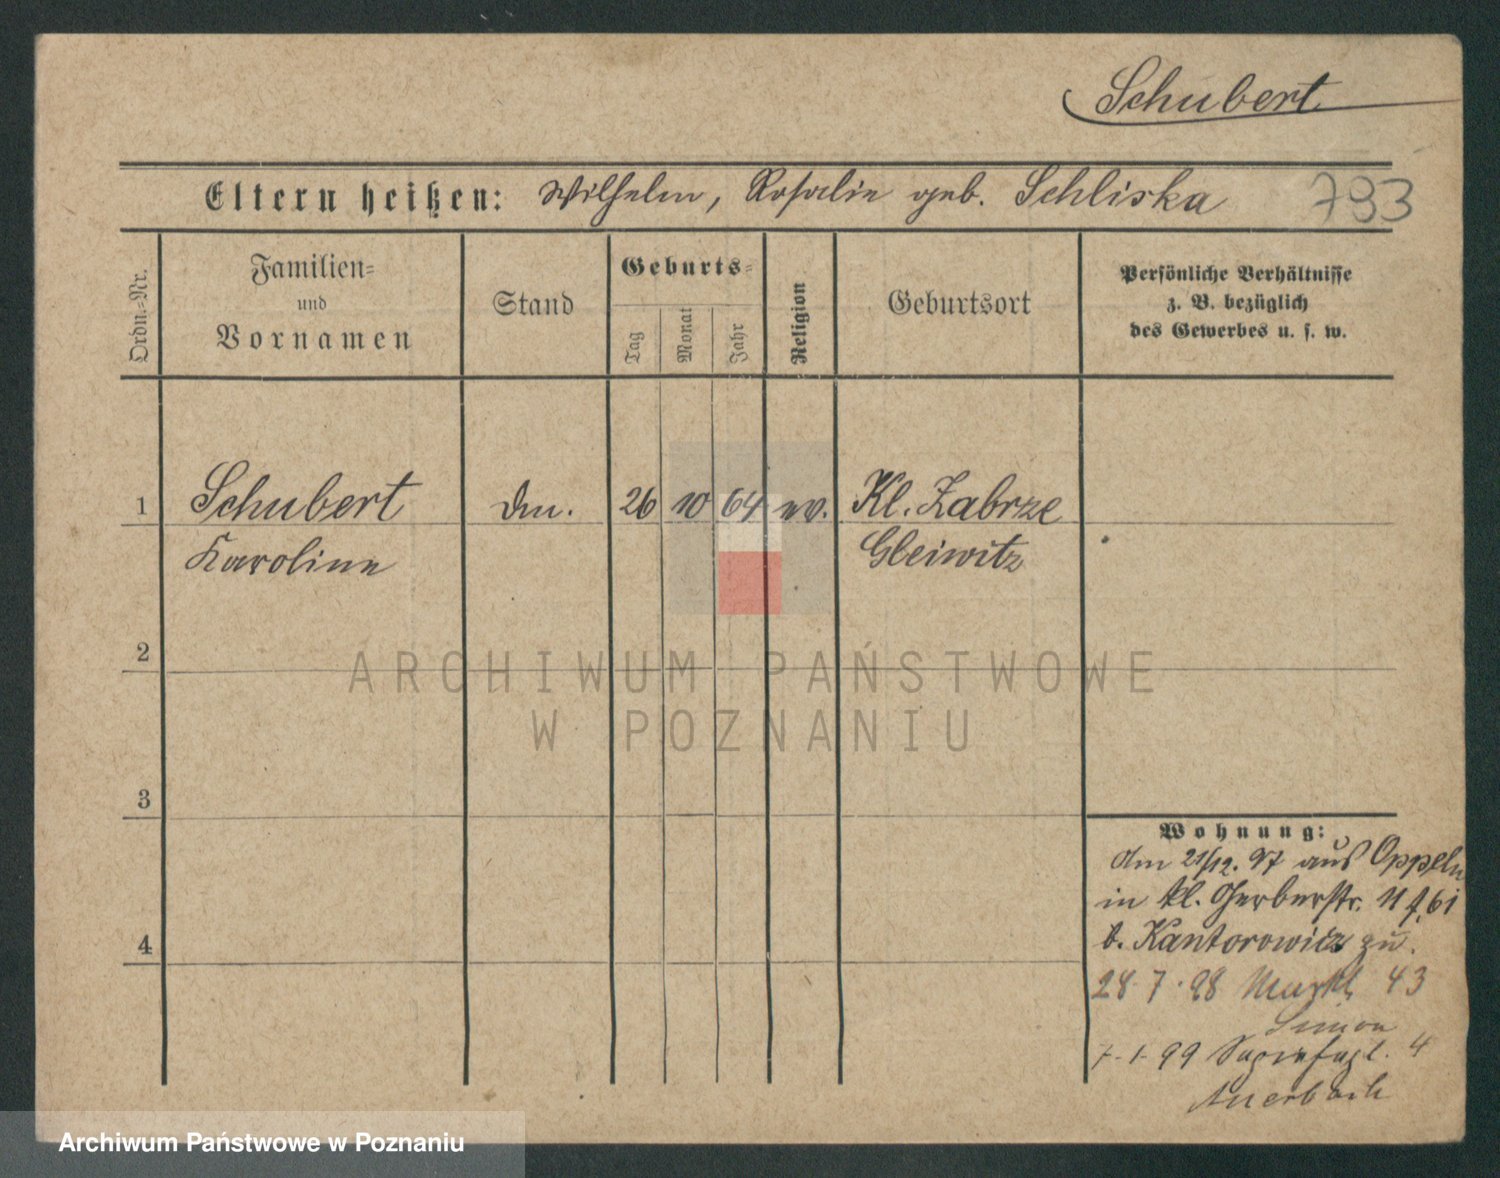 Schubert
Eltern heißen: Wilhelm, Rosalie geb. Schliska 793
Ordn.-Nr.
Familien- und Vornamen
Stand
Geburts-
Tag
Monat
Jahr
Religion
Geburtsort
Persönliche Verhältnisse
z. B. bezüglich
des Gewerbes u. s. w.
1 Schubert 26 10 64 ev. Kl. Zabrze
Karoline Gleiwitz
2
3
4
Wohnung:
Am 21/12. 97 aus Oppeln
in kl. Gerberstr. 11
b. Kantorowicz zu.
28 7. 98 43
Simon
1 99 4
Auerbach
ARCHIWUM PAŃSTWOWE
W POZNANIU
Archiwum Państwowe w Poznaniu